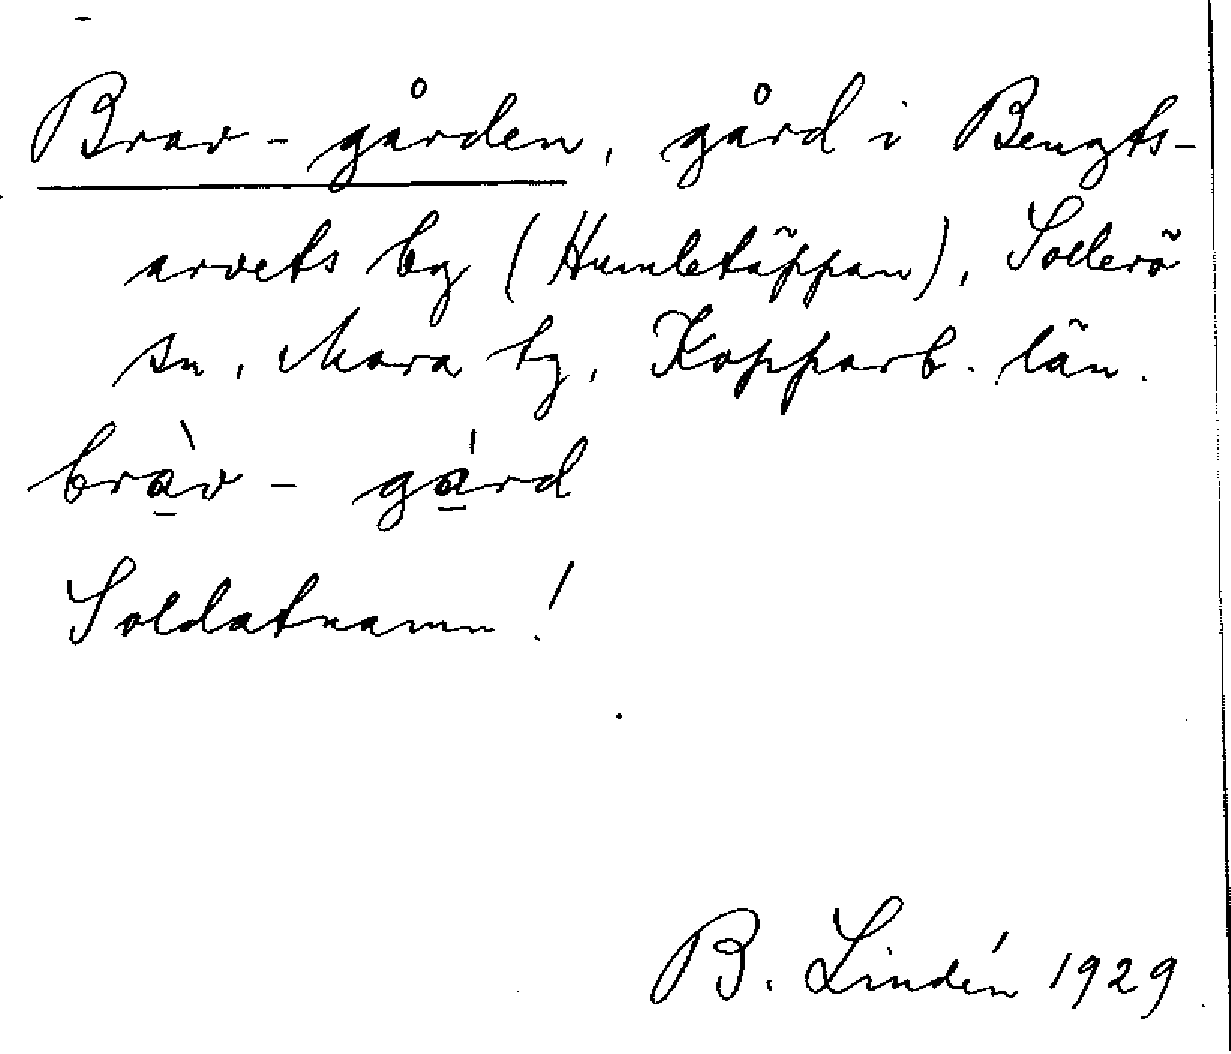 Brav-gården, gård i Bengts-
arvets by (Humletäppan), Sollerö
sn, Mora tg, Kopparb. län.
brà̲v - gá̲rd
Soldatnamn!
B. Lindén 1929